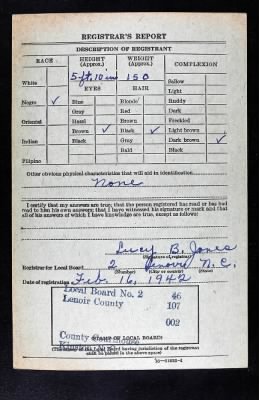 REGISTRAR'S REPORT
DESCRIPTION OF REGISTRANT
RACE HEIGHT (Approx.) WEIGHT (Approx.) COMPLEXION
5 ft. 10 in 150
White Sallow
EYES HAIR Light
Negro ✓ Blue Blonde Ruddy
Gray Red Dark
Oriental Hazel Brown Freckled
Brown ✓ Black ✓ Light brown
Indian Black Gray Dark brown ✓
Bald Black
Filipino
Other obvious physical characteristics that will aid in identification
None
I certify that my answers are true; that the person registered has read or has had
read to him his own answers; that I have witnessed his signature or mark and that
all of his answers of which I have knowledge are true, except as follows:
Lucy B. Jones
(Signature of registrar)
Registrar for Local Board 2 Lenoir N. C.
(Number) (City or county) (State)
Date of registration Feb. 16, 1942
Local Board No. 2 46
Lenoir County 107
002
County
(STAMP OF LOCAL BOARD)
(The stamp of the Local Board having jurisdiction of the registrant
shall be placed in the above space)